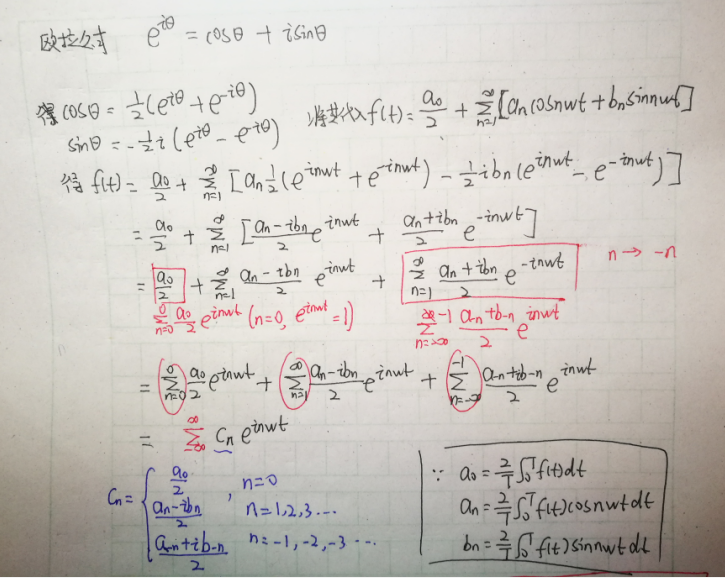 欧拉公式 e^{iθ} = cosθ + isinθ
得 cosθ = 1/2(e^{iθ} + e^{-iθ}) 将其代入 f(t) = a₀/2 + ∑_{n=1}^{∞}[aₙcosnwt + bₙsinnwt]
sinθ = -1/2 i(e^{iθ} - e^{-iθ})
得 f(t) = a₀/2 + ∑_{n=1}^{∞}[aₙ 1/2(e^{inwt} + e^{-inwt}) - 1/2 ibₙ(e^{inwt} - e^{-inwt})]
= a₀/2 + ∑_{n=1}^{∞}[(aₙ-ibₙ)/2 e^{inwt} + (aₙ+ibₙ)/2 e^{-inwt}]
= a₀/2 + ∑_{n=1}^{∞} (aₙ-ibₙ)/2 e^{inwt} + ∑_{n=1}^{∞} (aₙ+ibₙ)/2 e^{-inwt} n → -n
∑_{n=0}^{0} a₀/2 e^{inwt} (n=0, e^{inwt}=1)
= ∑_{n=0}^{0} a₀/2 e^{inwt} + ∑_{n=1}^{∞} (aₙ-ibₙ)/2 e^{inwt} + ∑_{n=-∞}^{-1} (a₋ₙ+ib₋ₙ)/2 e^{inwt}
= ∑_{-∞}^{∞} Cₙ e^{inwt}
Cₙ = { a₀/2 , n=0
(aₙ-ibₙ)/2 n=1,2,3⋯
(a₋ₙ+ib₋ₙ)/2 n=-1,-2,-3⋯
∵ a₀ = 2/T ∫₀ᵀ f(t)dt
aₙ = 2/T ∫₀ᵀ f(t)cosnwtdt
bₙ = 2/T ∫₀ᵀ f(t)sinnwtdt